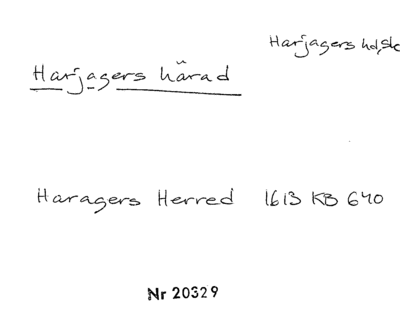 Harjagers hd, Sk
Harjagers härad
Haragers Herred 1613 KB 640
Nr 20329